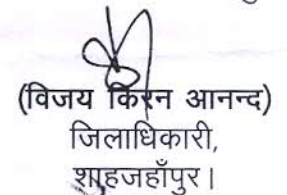 (विजय किरन आनन्द)
जिलाधिकारी,
शाहजहाँपुर।